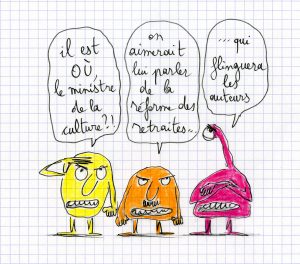 il est
OÙ,
le ministre
de la
culture?!
on
aimerait
lui parler
de la
réforme des
retraites..
... qui
flinguera
les
auteurs